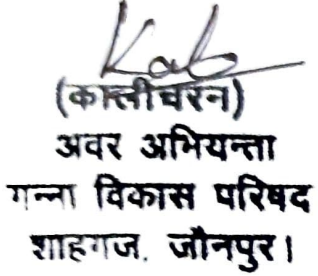 (कालीचरन)
अवर अभियन्ता
गन्ना विकास परिषद
शाहगज, जौनपुर।